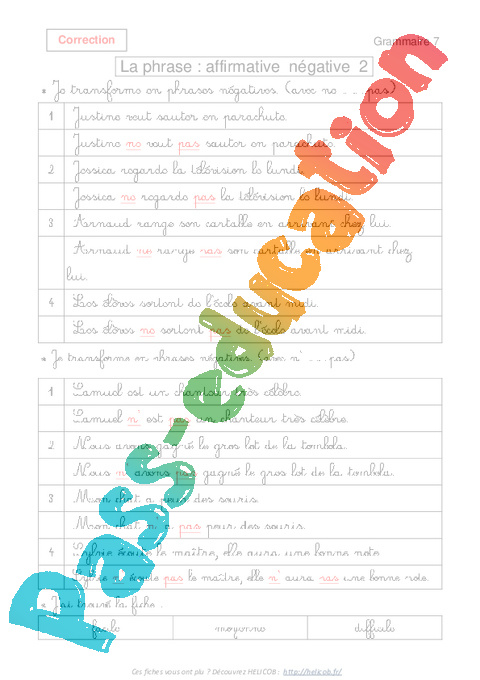 Correction
Grammaire 7
La phrase : affirmative négative 2
* Je transforme en phrases négatives. (avec ne ... pas)
1 Justine veut sauter en parachute.
Justine ne veut pas sauter en parachute.
2 Jessica regarde la télévision le lundi.
Jessica ne regarde pas la télévision le lundi.
3 Arnaud range son cartable en arrivant chez lui.
Arnaud ne range pas son cartable en arrivant chez
lui.
4 Les élèves sortent de l'école avant midi.
Les élèves ne sortent pas de l'école avant midi.
* Je transforme en phrases négatives. (avec n' ... pas)
1 Samuel est un chanteur très célèbre.
Samuel n' est pas un chanteur très célèbre.
2 Nous avons gagné le gros lot de la tombola.
Nous n' avons pas gagné le gros lot de la tombola.
3 Mon chat a peur des souris.
Mon chat n' a pas peur des souris.
4 Sylvie écoute le maître, elle aura une bonne note
Sylvie n' écoute pas le maître, elle n' aura pas une bonne note.
* J'ai trouvé la fiche .
facile moyenne difficile
Ces fiches vous ont plu ? Découvrez HELICOB : http://helicob.fr/
Pass-education